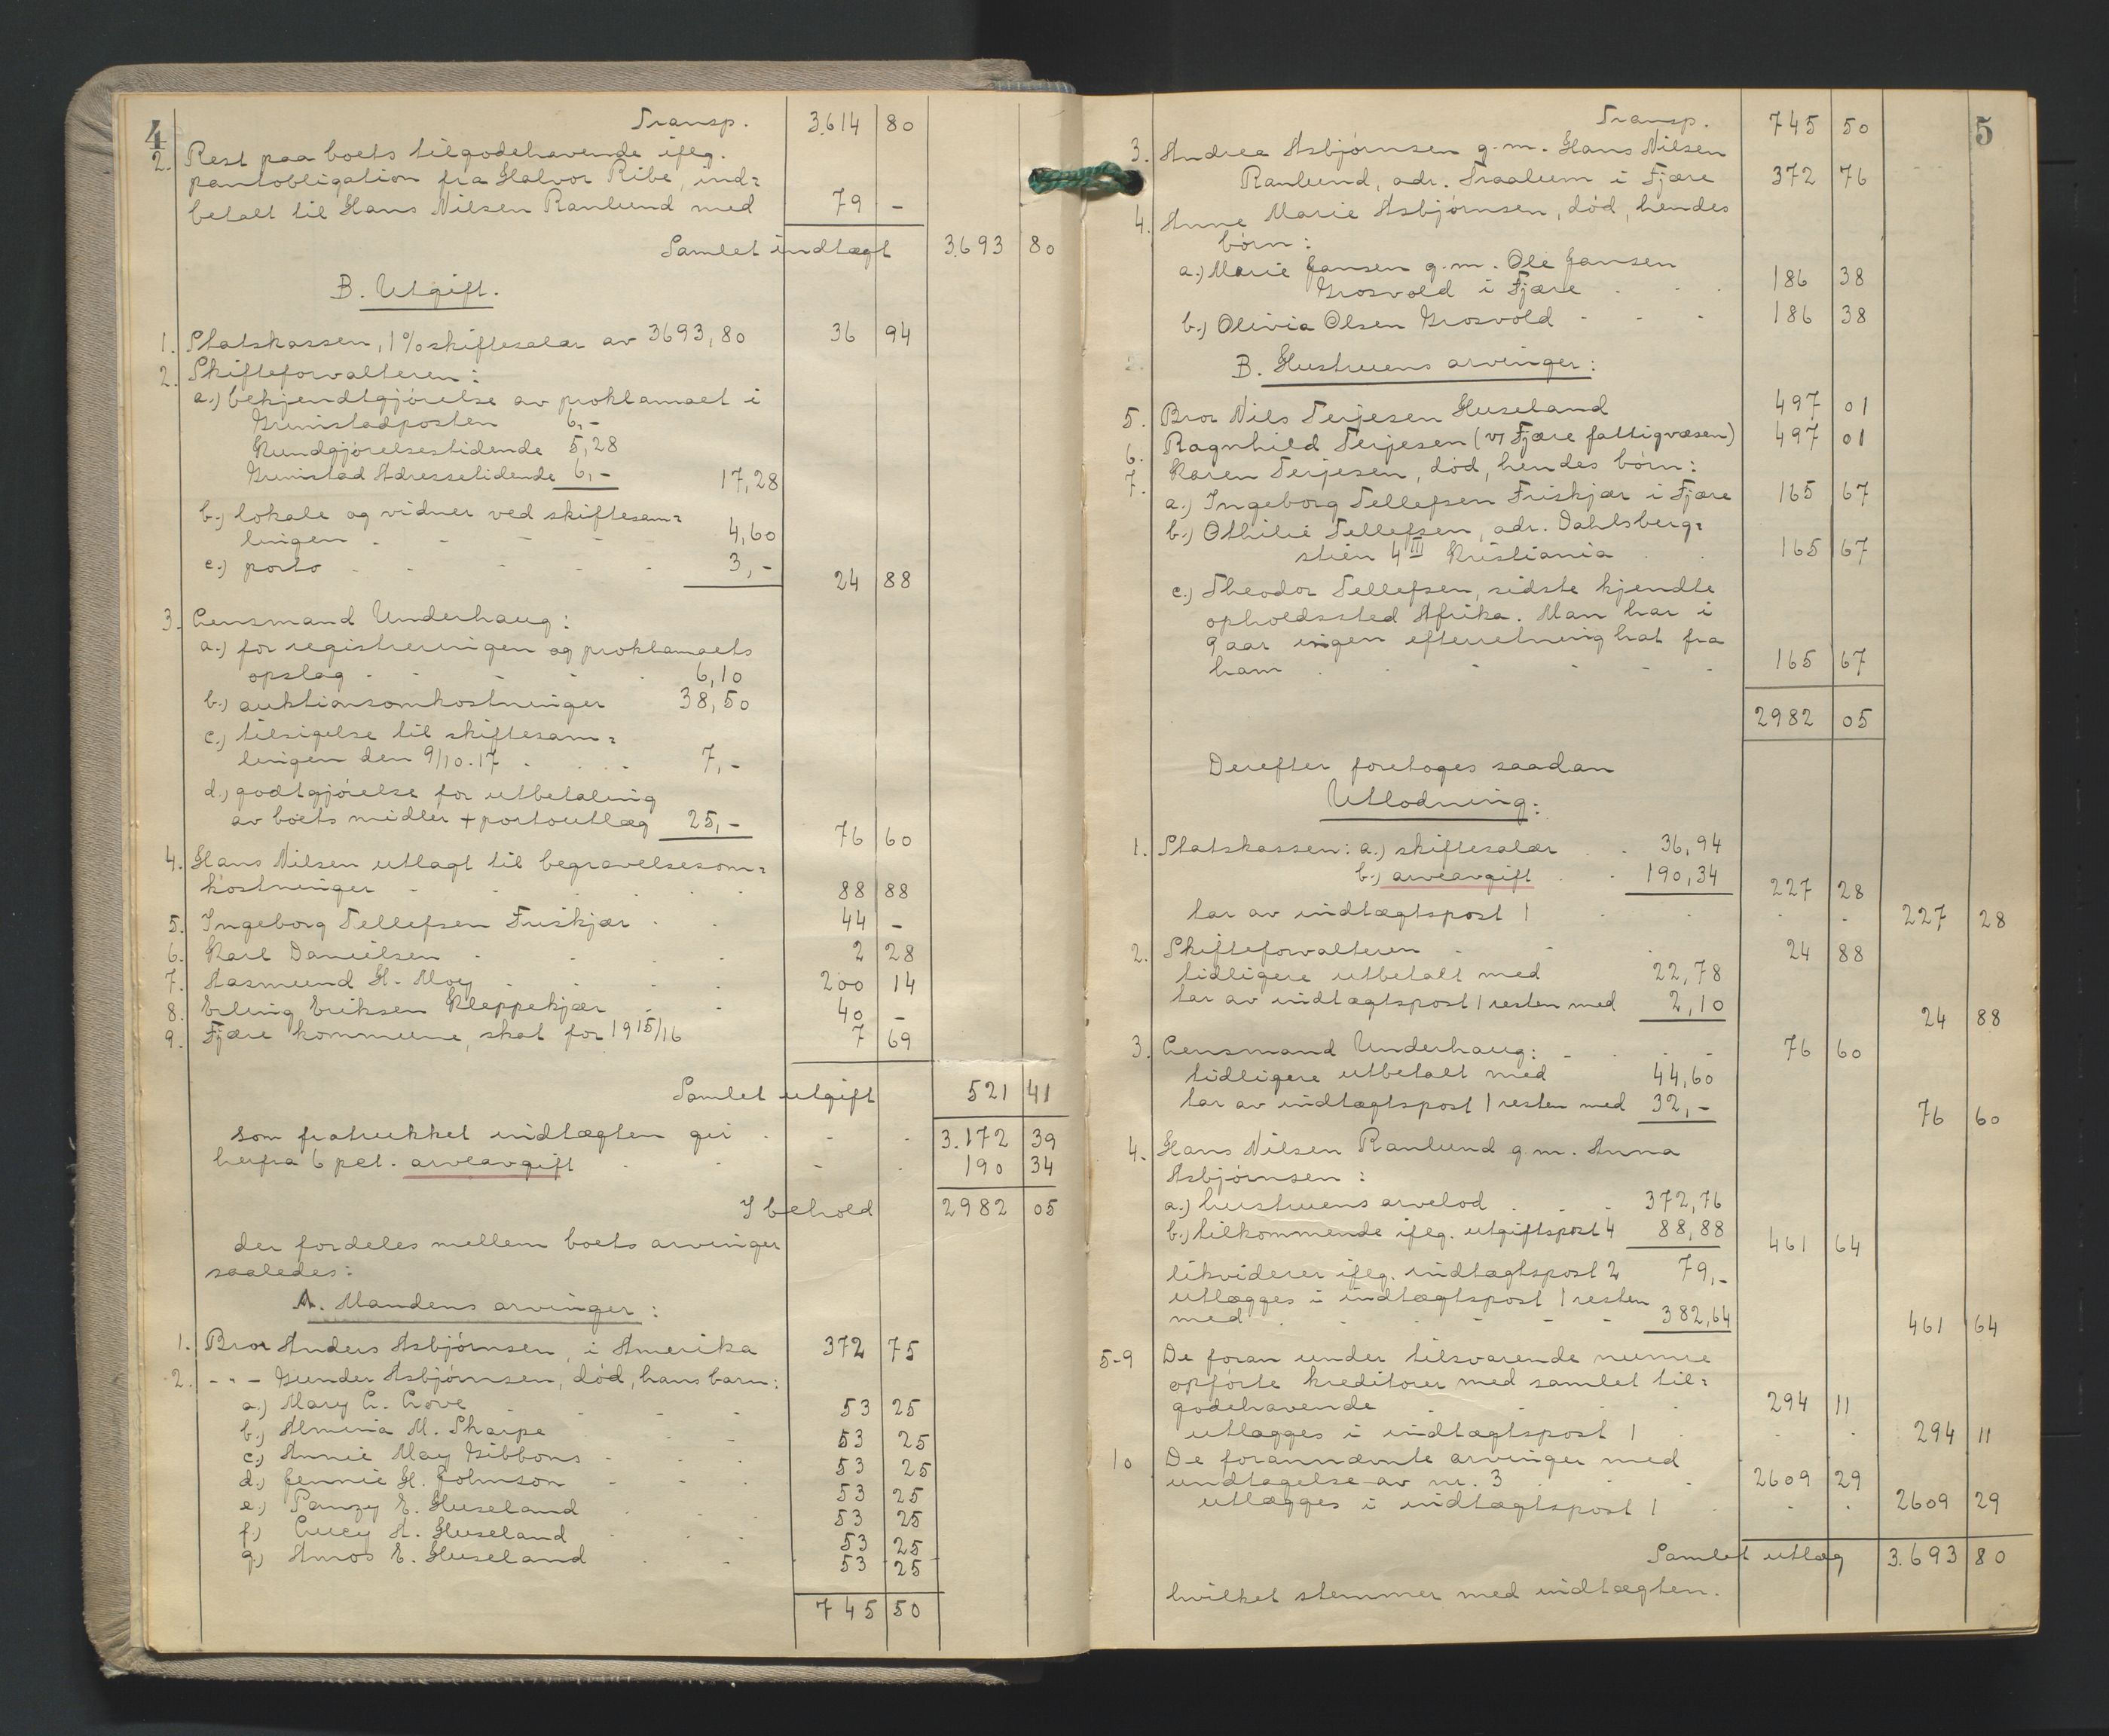 4
Transp. 3.614 80
2. Rest paa boets tilgodehavende ifeg.
pantobligation fra Halvor Ribe, ind=
betalt til Hans Nilsen Ranlund med 79 -
Samlet indtægt 3.693 80
B. Utgift.
1. Statskassen, 1% skiftesalær av 3693,80 36 94
2. Skifteforvalteren:
a.) bekjendtgjørelse av proklamaet i
Grimstadposten 6,-
Kundgjørelsestidende 5,28
Grimstad Adressetidende 6,- 17,28
b.) lokale og vidner ved skiftesam=
lingen 4,60
c.) porto 3,- 24 88
3. Lensmand Underhaug:
a.) for registreringen og proklamaets
opslag 6,10
b.) auktionsomkostninger 38,50
c.) tilsigelse til skiftesam=
lingen den 9/10.17 7,-
d.) godtgjørelse for utbetaling
av boets midler + portoutlæg 25,- 76 60
4. Hans Nilsen utlagt til begravelsesom=
kostninger 88 88
5. Ingeborg Tellefsen Friskjær 44 -
6. Karl Danielsen 2 28
7. Aasmund H. Moey 200 14
8. Erling Eriksen Kleppekjær 40 -
9. Fjære kommune, skat for 1915/16 7 69
Samlet utgift 521 41
som fratrukket indtægten gir 3.172 39
herfra 6 pct. arveavgift 190 34
I behold 2982 05
der fordeles mellem boets arvinger
saaledes:
A. Mandens arvinger:
1. Bror Anders Asbjørnsen, i Amerika 372 75
2. - " - Gunder Asbjørnsen, død, hans barn:
a.) Mary C. Crove 53 25
b.) Almina M. Sharpe 53 25
c.) Annie May Gibbons 53 25
d.) Jennie H. Johnson 53 25
e.) Panzy E. Huseland 53 25
f.) Lucy A. Huseland 53 25
g.) Amos E. Huseland 53 25
745 50
5
Transp. 745 50
3. Andrea Asbjørnsen g.m. Hans Nilsen
Ranlund, adr. Traalum i Fjære 372 76
4. Anne Marie Asbjørnsen, død, hendes
børn:
a.) Marie Jansen g.m. Ole Jansen
Grosvold i Fjære 186 38
b.) Olivia Olsen Grosvold 186 38
B. Hustruens arvinger:
5. Bror Nils Terjesen Huseland 497 01
6. Ragnhild Terjesen (v/ Fjære fattigvæsen) 497 01
7. Karen Terjesen, død, hendes børn:
a.) Ingeborg Tellefsen Friskjær i Fjære 165 67
b.) Othilie Tellefsen, adr. Dahlsberg=
stien 4 III Kristiania 165 67
c.) Theodor Tellefsen, sidste kjendte
opholdssted Afrika. Man har i
9 aar ingen efterretning hat fra
ham 165 67
2982 05
Derefter foretoges saadan
Utlodning:
1. Statskassen: a.) skiftesalær 36,94
b.) arveavgift 190,34 227 28
tar av indtægtspost 1 227 28
2. Skifteforvalteren 24 88
tidligere utbetalt med 22,78
tar av indtægtspost 1 resten med 2,10
24 88
3. Lensmand Underhaug: 76 60
tidligere utbetalt med 44,60
tar av indtægtspost 1 resten med 32,-
76 60
4. Hans Nilsen Ranlund g.m. Anna
Asbjørnsen:
a.) hustruens arvelod 372,76
b.) tilkommende ifeg. utgiftspost 4 88,88 461 64
likviderer ifeg. indtægtspost 2 79,-
utlægges i indtægtspost 1 resten
med 382,64 461 64
5-9 De foran under tilsvarende numre
opførte kreditorer med samlet til=
godehavende 294 11
utlægges i indtægtspost 1 294 11
10 De forannævnte arvinger med
undtagelse av nr. 3 2609 29
utlægges i indtægtspost 1 2609 29
Samlet utlæg 3.693 80
hvilket stemmer med indtægten.